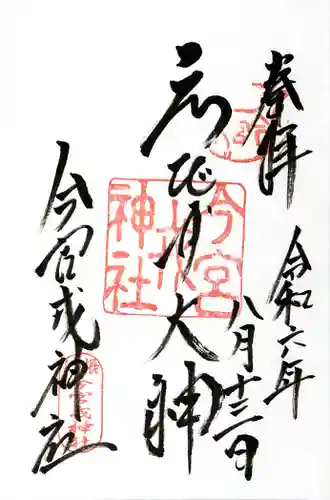 奉拝
令和六年
八月十三日
ゑびす大神
今宮戎神社
今宮
戎
神社